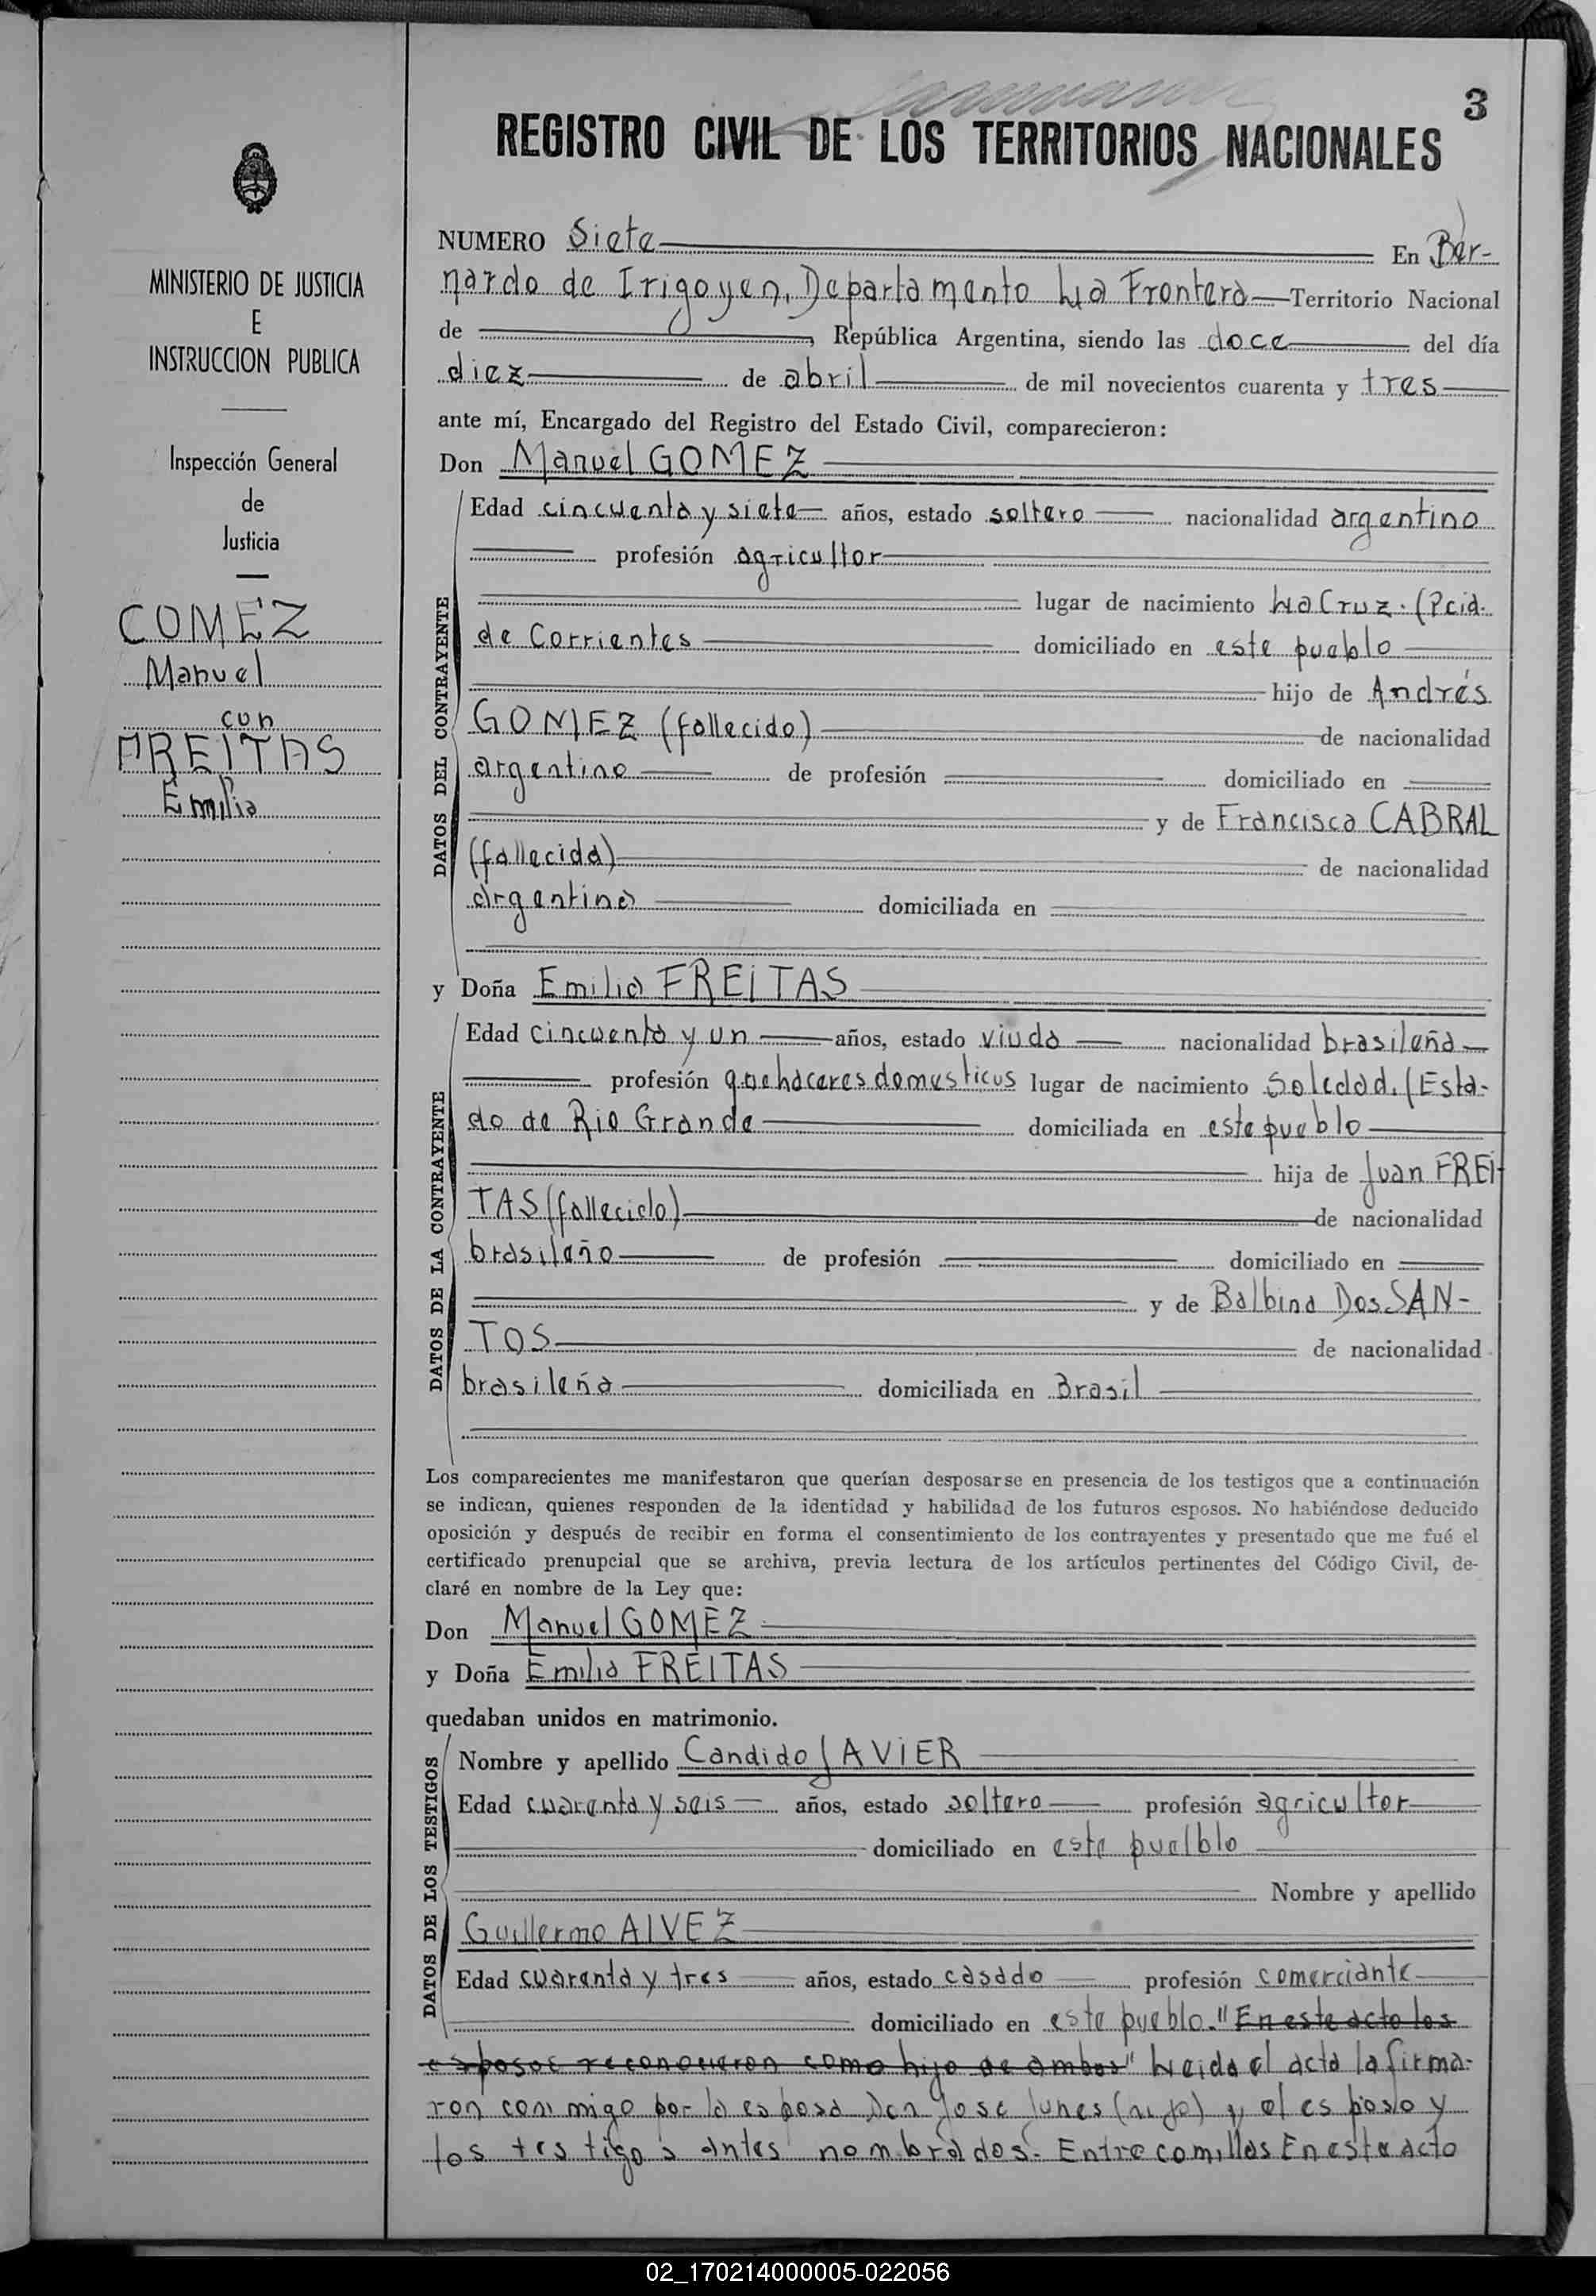 3
REGISTRO CIVIL DE LOS TERRITORIOS NACIONALES
MINISTERIO DE JUSTICIA
E
INSTRUCCION PUBLICA
Inspección General
de
Justicia
GOMEZ
Manuel
con
FREITAS
Emilia
NUMERO Siete En Ber-
nardo de Irigoyen, Departamento La Frontera Territorio Nacional
de , República Argentina, siendo las doce del día
diez de abril de mil novecientos cuarenta y tres
ante mí, Encargado del Registro del Estado Civil, comparecieron:
Don Manuel GOMEZ
DATOS DEL CONTRAYENTE
Edad cincuenta y siete años, estado soltero nacionalidad argentino
profesión agricultor
lugar de nacimiento La Cruz. (Pcia.
de Corrientes domiciliado en este pueblo
hijo de Andrés
GOMEZ (fallecido) de nacionalidad
argentino de profesión domiciliado en
y de Francisca CABRAL
(fallecida) de nacionalidad
argentina domiciliada en
y Doña Emilia FREITAS
DATOS DE LA CONTRAYENTE
Edad cincuenta y un años, estado viuda nacionalidad brasileña
profesión quehaceres domesticos lugar de nacimiento Soledad. (Esta-
do de Rio Grande domiciliada en este pueblo
hija de Juan FREI-
TAS (fallecido) de nacionalidad
brasileño de profesión domiciliado en
y de Balbina Dos SAN-
TOS de nacionalidad
brasileña domiciliada en Brasil
Los comparecientes me manifestaron que querían desposarse en presencia de los testigos que a continuación
se indican, quienes responden de la identidad y habilidad de los futuros esposos. No habiéndose deducido
oposición y después de recibir en forma el consentimiento de los contrayentes y presentado que me fué el
certificado prenupcial que se archiva, previa lectura de los artículos pertinentes del Código Civil, de-
claré en nombre de la Ley que:
Don Manuel GOMEZ
y Doña Emilia FREITAS
quedaban unidos en matrimonio.
DATOS DE LOS TESTIGOS
Nombre y apellido Candido JAVIER
Edad cuarenta y seis años, estado soltero profesión agricultor
domiciliado en este puelblo
Nombre y apellido
Guillermo AlVEZ
Edad cuarenta y tres años, estado casado profesión comerciante
domiciliado en este pueblo. "En este acto los
esposos reconocieron como hijo de ambos" Leida el acta la firma-
ron con migo por la esposa Don Jose Junes (hijo) y el esposo y
los testigos antes nombrados. Entre comillas En este acto
02_170214000005-022056